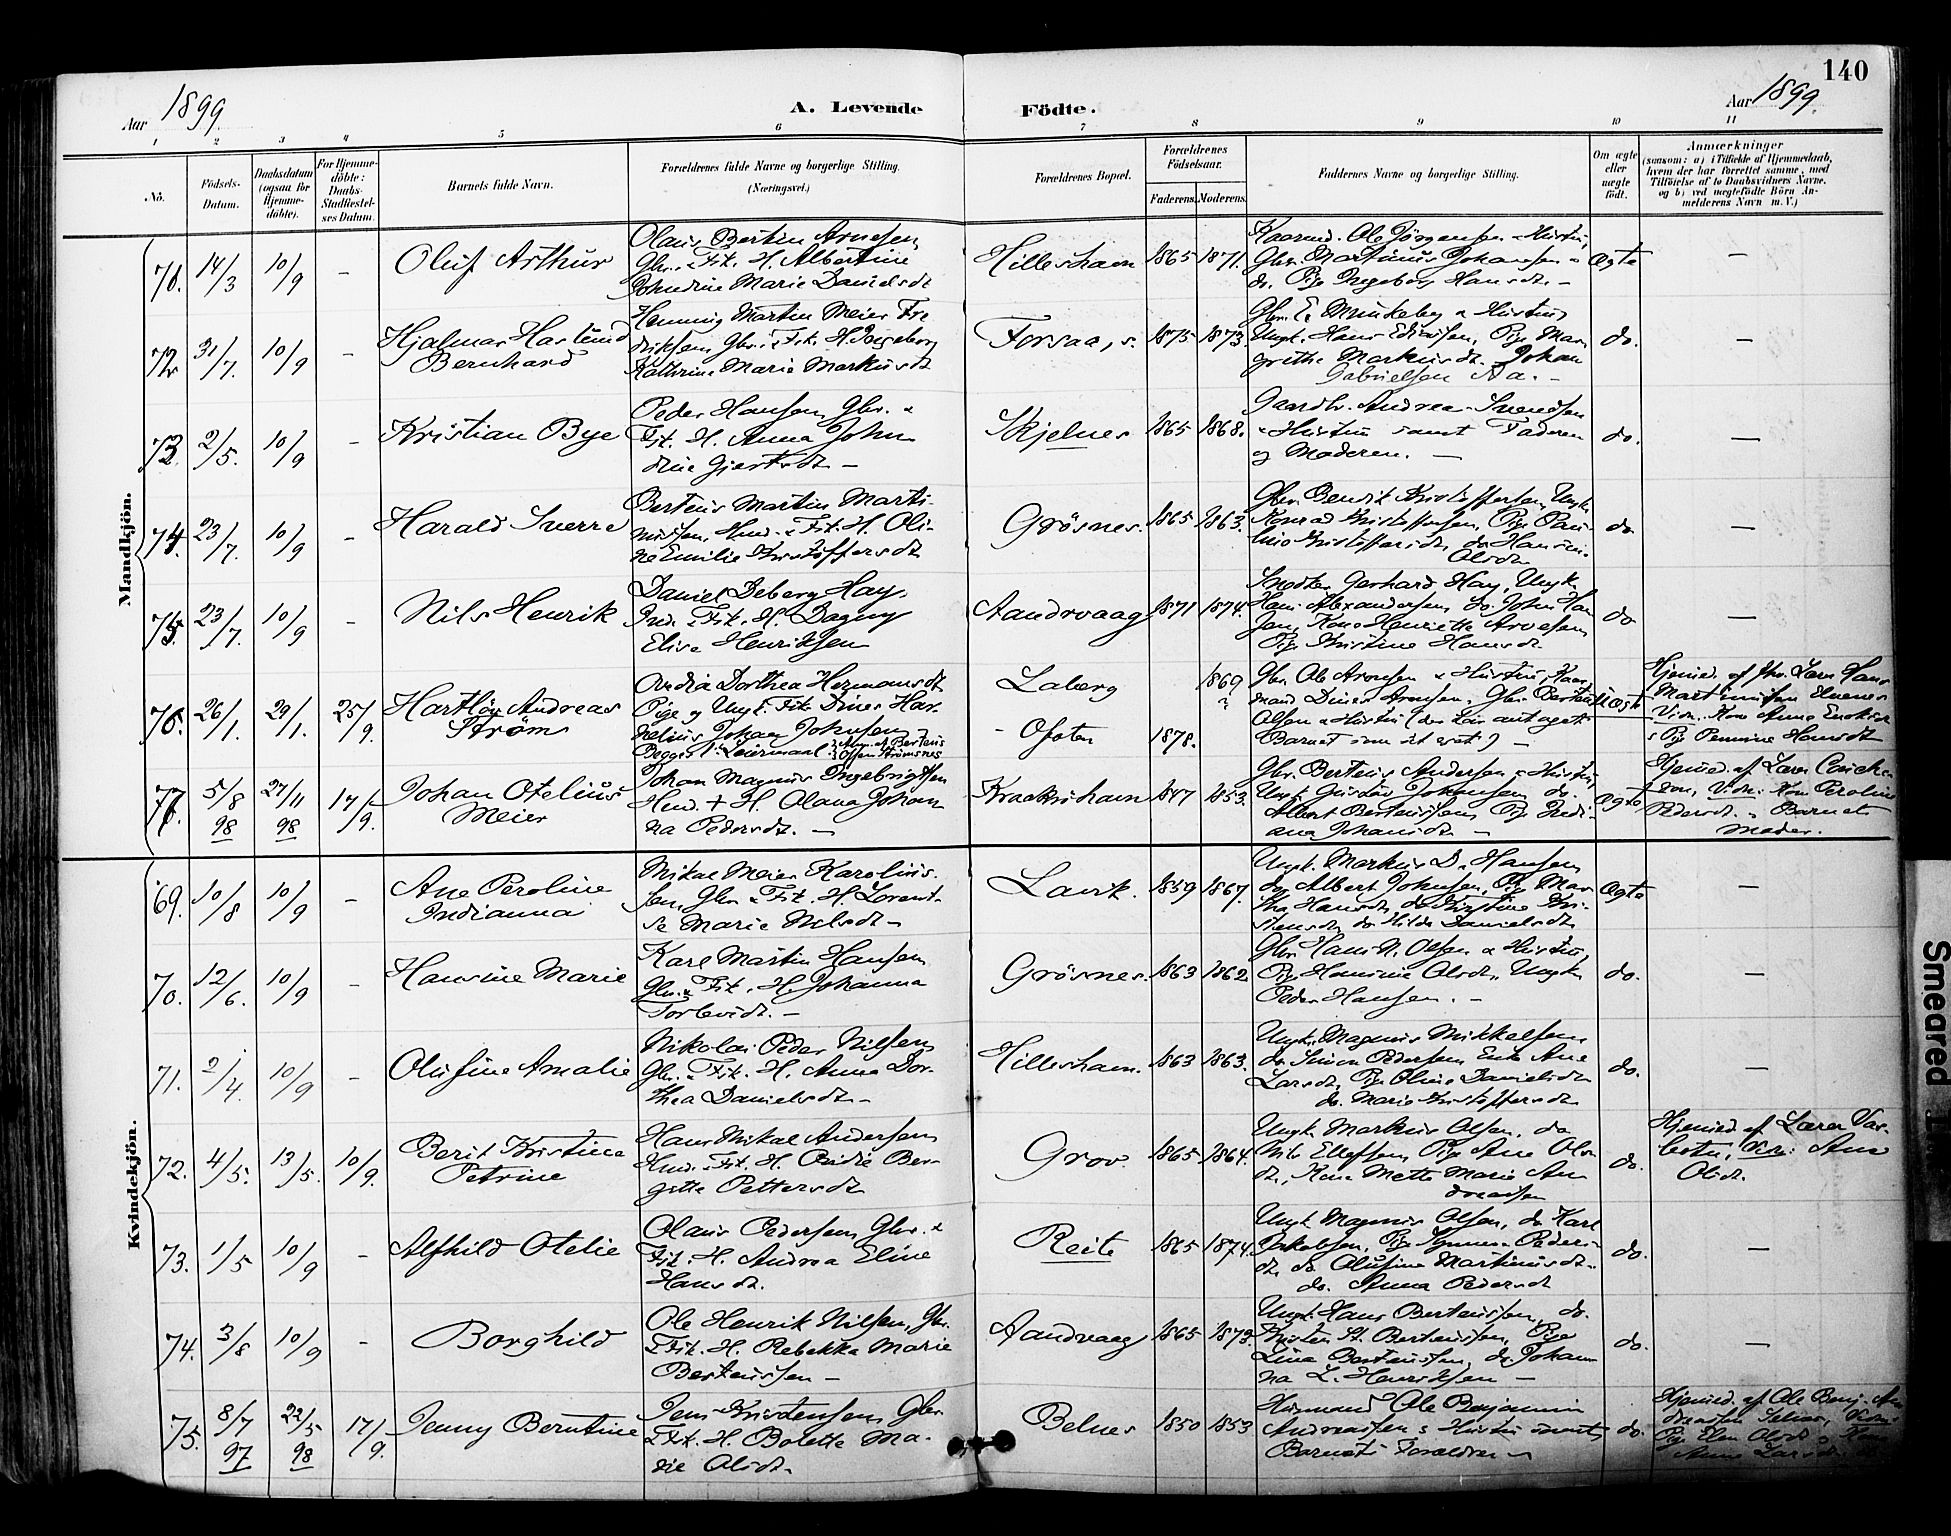 140
Aar 1899.
A. Levende Födte.
Aar 1899.
1 2 3 4 5 6 7 8 9 10 11
No.
Födsels-Datum.
Daabsdatum (ogsaa for Hjemme-döbte).
For Hjemme-döbte: Daabs-Stadfæstel-ses Datum.
Barnets fulde Navn.
Forældrenes fulde Navne og borgerlige Stilling. (Næringsvei.)
Forældrenes Bopæl.
Forældrenes Födselsaar.
Faderens. Moderens.
Faddernes Navne og borgerlige Stilling.
Om ægte eller uægte födt.
Anmærkninger
(saasom: a) i Tilfælde af Hjemmedaab, hvem der har forrettet samme, med Tilföielse af to Daabsvidners Navne, og b) ved uægtefödte Börn An-melderens Navn m. V.)
Mandkjön.
71. 14/3 10/9 – Oluf Arthur
Olaus Bertin Arnesen,
Gbr. & Fit. H. Albertine
Johndine Marie Danielsdt
Hilleshavn 1865 1871.
Ole Jörgensen & Hustru,
Gbr. Martinus Johansen &
do. Pige Ingeborg Hansdt. –
Ægte –
72 31/7. 10/9 – Hjalmar Haslund
Bernhard
Henning Martin Meier Fre
driksen, Gbr. & Fit. H. Ingeborg
Kathrine Marie Markusdt
Forsaa, s. 1875 1873.
Gbr. E. Munkeby & Hustru
Ungk. Hans Edissen, Pige Mar
grethe Markusdt. Johan
Gabrielsen Aa. –
do. –
73. 2/5. 10/9 – Kristian Bye
Peder Hansen, Gbr. &
Fit. H. Anna John
dine Gjertsdt –
Skjelnes 1865 1868.
Gaardbr. Andrea Svendsen
& Hustru samt Faderen
og Moderen. –
do. –
74. 23/7. 10/9 – Harald Sverre
Berteus Martin Marti-
nussen, Hmd. & Fit. H. Oli-
ne Emilie Kristoffersdt
Grösnes. 1865 1863.
Gbr. Bendik Kristoffersen, Ungk
Konrad Kristoffersen, Pige Pau-
line Kristoffersdt, do Hansine
Olsdt
do –
75. 23/7. 10/9 – Nils Henrik
Daniel Deberg Hay,
Ind. & Fit. H. Dagny
Elise Henriksen
Aandrvaag 1871 1874.
Snedker Gerhard Hay, Ungk
Hans Alexandersen, do John Han
sen, Kone Henriette Arnesen,
Pige Kristine Hansdt
do –
76. 26/1. 29/1. 25/9. Hartlöv Andreas
Ström
Ovedia Dorthea Hermansdt
Pige og Ungk. Fit. Diner Har-
nelius Johan Johnsen
Begges 1. Leiermaal
Laberg – Ofoten 1878. 1869
Gbr. Ole Arnesen & Hustru,
mand Diner Arnesen, Gbr. Berteus
Olsen & Hustru (der har antaget
Barnet som sit eget) –
Uægte
Hjemmed. af Lars Hans
Martinussen Elvenes
Vidn. Kone Anne Enoksdt
& Pige Pernine Hansdt
77. 5/8 98 27/11 98 17/9. Johan Otelius
Meier
Johan Magnus Ingebrigtsen
Hmd. + H. Olava Johan
na Pedersdt. –
Kraakrshavn 1847 1853.
Gbr. Berteus Andersen & Hustru,
Ungk. Gustav Johansen do.
Albert Berteussen, Pige Indi-
ana Johansdt –
Ægte
Hjemmed. af Lærer
Vidn: Kone Peroline
Pedersdt. & Barnets
Moder.
Kvindekjön.
69. 10/8 10/9 – Ane Peroline
Indianna
Mikal Meier Karolius-
sen, Gbr. & Fit. H. Lorent-
se Marie Nilsdt –
Lavik. 1859 1867.
Ungk. Markus D. Hansen,
do, Albert Johnsen, Pige Mar
tha Hansdt, do Kirstine Kri-
stensdt, do Hilda Danielsdt
Ægte –
70. 12/6. 10/9 – Hansine Marie
Karl Martin Hansen
Gbr. & Fit. H. Johanna
Torlevsdt. –
Grösnes. 1863 1862
Gbr. Hans N. Olsen & Hustru,
Pige Hansine Olsdt, Ungk
Peder Hansen. –
do. –
71. 2/4. 10/9 – Olufine Amalie
Nikolai Peder Nilsen,
Gbr. & Fit. H. Anna Dor-
thea Danielsdt –
Hilleshavn. 1863 1863.
Ungk. Magnus Mikkelsen
do Simon Pedersen, Enke Ane
Larsdt, Pige Oline Danielsdt
do. Marie Kristoffersdt
do. –
72. 4/5. 13/5. 10/9. Berit Kristine
Petrine
Hans Mikal Andersen,
Hmd. & Fit. H. Peidie Ber-
gitte Pettersdt
Grov. 1865 1864.
Ungk. Markus Olsen, do
Nils Ellefsen, Pige Ane Ols
dt, Kone Mette Marie An
dreassen
do.
Hjemmed. af Lærer Vas-
botn, Vidn: Ane
Olsdt.
73. 1/5 10/9 – Alfhild Otelie
Olaus Pedersen, Gbr. &
Fit. H. Andrea Eline
Hansdt.
Reite 1865 1874.
Ungk. Magnus Olsen, do Karl
Jakobsen, Pige Gunnera Peders-
dt, do Olufine Martinusdt
do. Anna Pedersdt
do. –
74. 3/8 10/9 – Borghild
Ole Henrik Nilsen, Gbr.
& Fit. H. Rebekka Marie
Berteussen –
Aandvaag 1865 1873.
Ungk. Hans Berteussen, do.
Kristen St. Berteussen, Pige
Lina Berteussen, do Johan
na L. Henriksen –
do. –
75. 8/7 97 22/5 98 17/9. Jenny Berntine
Jens Kristensen, Gbr
& Fit. H. Bolette Ma-
rie Olsdt.
Belnes 1850 1853
Husmand Ole Benjamin
Andreassen & Hustru samt
Barnets Forældre –
do.
Hjemmed. af Ole Benj. An
dreassen Vidn:
Pige Elen Olsdt &
Anne Larsdt
Smeared